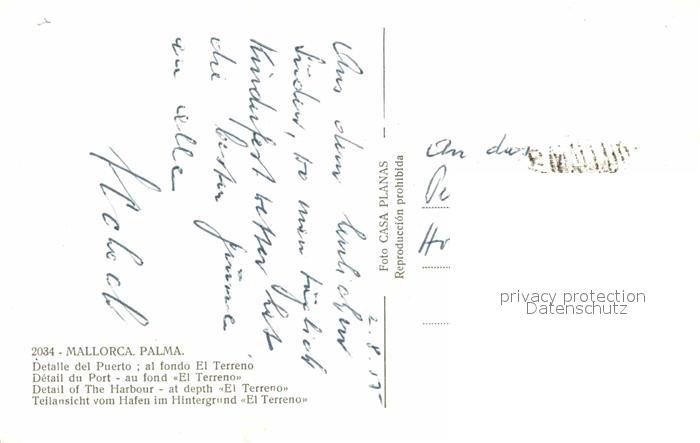 Aus dem herrlichen
Süden, wo man täglich
Kinderfest wetter hat,
die besten Grüsse
an alle
2.8.
An das
Foto CASA PLANAS
Reproducción prohibida
privacy protection
Datenschutz
2034 - MALLORCA. PALMA.
Detalle del Puerto ; al fondo El Terreno
Détail du Port - au fond «El Terreno»
Detail of The Harbour - at depth «El Terreno»
Teilansicht vom Hafen im Hintergrund «El Terreno»